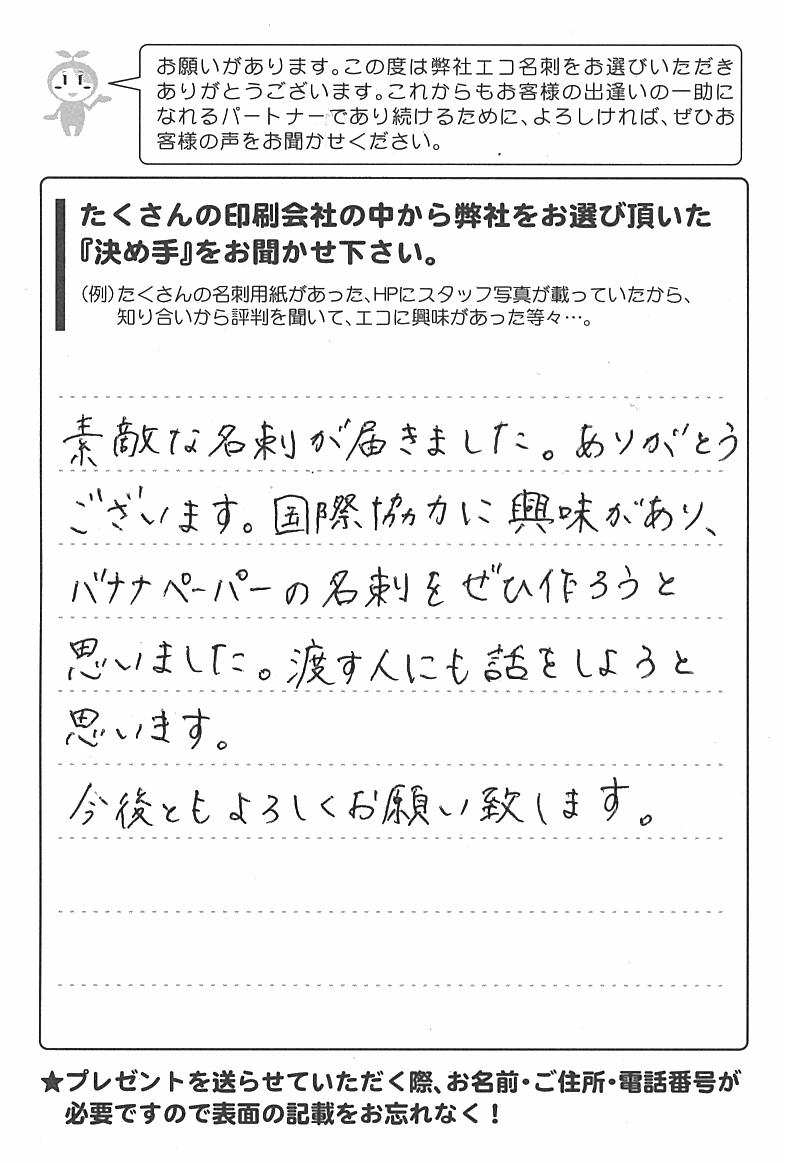 お願いがあります。この度は弊社エコ名刺をお選びいただき
ありがとうございます。これからもお客様の出逢いの一助に
なれるパートナーであり続けるために、よろしければ、ぜひお
客様の声をお聞かせください。
たくさんの印刷会社の中から弊社をお選び頂いた
『決め手』をお聞かせ下さい。
(例)たくさんの名刺用紙があった、HPにスタッフ写真が載っていたから、
知り合いから評判を聞いて、エコに興味があった等々…。
素敵な名刺が届きました。ありがとう
ございます。国際協力に興味があり、
バナナペーパーの名刺をぜひ作ろうと
思いました。渡す人にも話をしようと
思います。
今後ともよろしくお願い致します。
★プレゼントを送らせていただく際、お名前・ご住所・電話番号が
必要ですので表面の記載をお忘れなく!